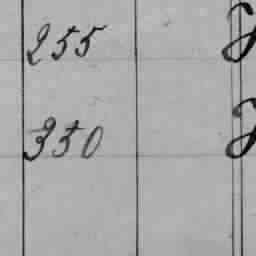 255
350